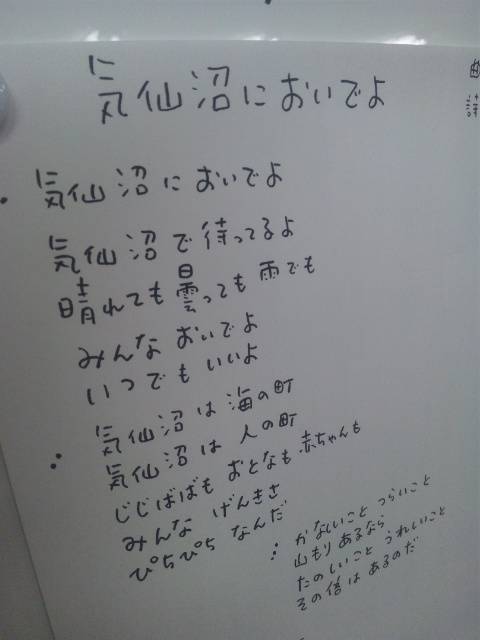 気仙沼においでよ
気仙沼においでよ
気仙沼で待ってるよ
晴れても曇っても雨でも
みんなおいでよ
いつでもいいよ
気仙沼は海の町
気仙沼は人の町
じじばばもおとなも赤ちゃんも
みんなげんきさ
ぴちぴちなんだ
かなしいことつらいこと
山もりあるなら
たのしいことうれしいこと
その倍はあるのだ